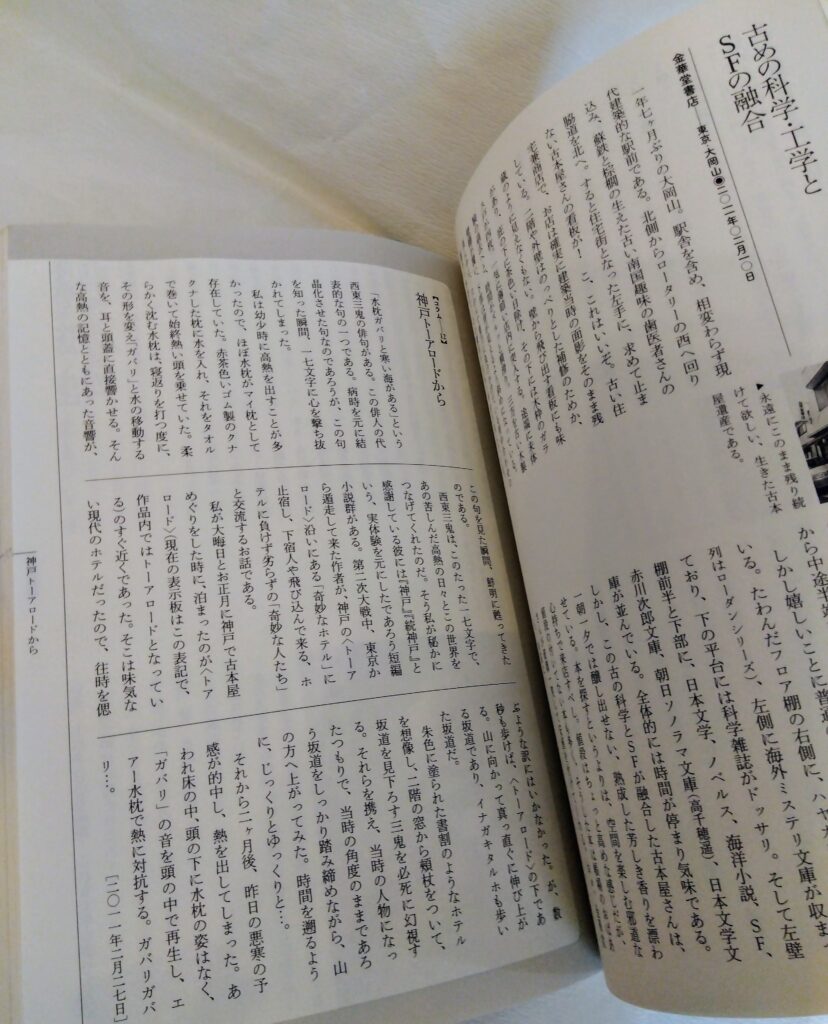 古めの科学・工学と
SFの融合
金華堂書店——東京・大岡山◉二〇一一年〇二月一〇日
一年七ヶ月ぶりの大岡山。駅舎を含め、相変わらず現
代建築的な駅前である。北側からロータリーの西へ回り
込み、蘇鉄と棕櫚の生えた古い南国趣味の歯医者さんの
脇道を北へ。すると住宅街となった左手に、求めて止ま
ない古本屋さんの看板が！　こ、これはいいぞ。古い住
宅兼商店で、お店は確実に建築当時の面影をそのまま残
している。二階や外壁はのっぺりとして補修のためか、
▶永遠にこのまま残り続
けて欲しい、生きた古本
屋遺産である。
から中途半
しかし嬉しいことに普通
いる。たわんだフロア棚の右側に、ハヤカ
列はローダンシリーズ）、左側に海外ミステリ文庫が収ま
ており、下の平台には科学雑誌がドッサリ。そして左壁
棚前半と下部に、日本文学、ノベルス、海洋小説、SF、
赤川次郎文庫、朝日ソノラマ文庫（高千穂遥）、日本文学文
庫が並んでいる。全体的には時間が停まり気味である。
しかし、この古の科学とSFが融合した古本屋さんは、
一朝一夕では醸し出せない、熟成した芳しき香りを漂わ
せている。本を探すというよりは、空間を楽しむ邪道な
神戸トーアロードから
「水枕ガバリと寒い海がある」という
西東三鬼の俳句がある。この俳人の代
表的な句の一つである。病時を元に結
晶化させた句なのであろうが、この句
を知った瞬間、一七文字に心を撃ち抜
かれてしまった。
私は幼少時に高熱を出すことが多
かったので、ほぼ水枕がマイ枕として
存在していた。赤茶色いゴム製のクナ
クナした枕に水を入れ、それをタオル
で巻いて始終熱い頭を乗せていた。柔
らかく沈む水枕は、寝返りを打つ度に、
その形を変え「ガバリ」と水の移動する
音を、耳と頭蓋に直接響かせる。そん
な高熱の記憶とともにあった音響が、
この句を見た瞬間、鮮明に甦ってきた
のである。
西東三鬼は、このたった一七文字で、
あの苦しんだ高熱の日々とこの世界を
つなげてくれたのだ。そう私が秘かに
感謝している彼には『神戸』『続神戸』と
いう、実体験を元にしたであろう短編
小説群がある。第二次大戦中、東京か
ら遁走して来た作者が、神戸の〈トーア
ロード〉沿いにある「奇妙なホテル」に
止宿し、下宿人や飛び込んで来る、ホ
テルに負けず劣らずの「奇妙な人たち」
と交流するお話である。
私が大晦日とお正月に神戸で古本屋
めぐりをした時に、泊まったのが〈トア
ロード〉（現在の表示板はこの表記で、
作品内ではトーアロードとなってい
る）のすぐ近くであった。そこは味気な
い現代のホテルだったので、往時を偲
ぶような訳にはいかなかった。が、数
秒も歩けば、〈トーアロード〉の下であ
る。山に向かって真っ直ぐに伸び上が
る坂道であり、イナガキタルホも歩い
た坂道だ。
朱色に塗られた書割のようなホテル
を想像し、二階の窓から頬杖をついて、
坂道を見下ろす三鬼を必死に幻視す
る。それらを携え、当時の人物になっ
たつもりで、当時の角度のままであろ
う坂道をしっかり踏み締めながら、山
の方へ上がってみた。時間を遡るよう
に、じっくりとゆっくりと…。
それから二ヶ月後、昨日の悪寒の予
感が的中し、熱を出してしまった。あ
われ床の中、頭の下に水枕の姿はなく、
「ガバリ」の音を頭の中で再生し、エ
アー水枕で熱に対抗する。ガバリガバ
リ…。
［二〇一一年二月二七日］
神戸トーアロードから